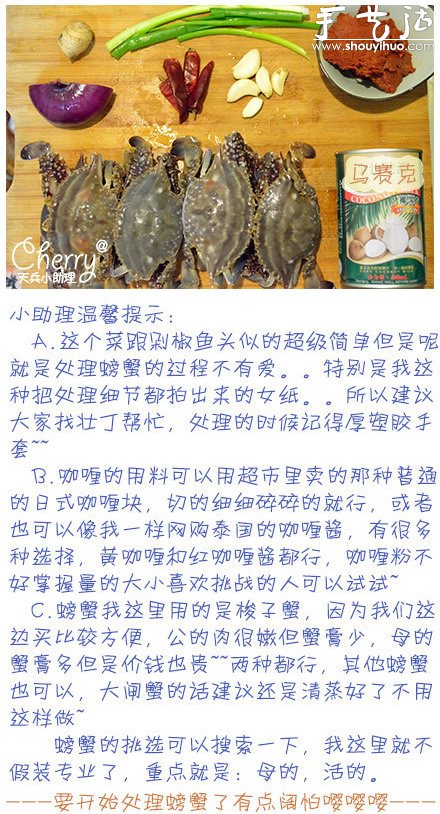 手艺活
www.shouyihuo.com
马赛克
COCONUT
Cherry@
天兵小助理
小助理温馨提示：
A.这个菜跟剁椒鱼头似的超级简单但是呢
就是处理螃蟹的过程不有爱。。特别是我这
种把处理细节都拍出来的女纸。。所以建议
大家找壮丁帮忙，处理的时候记得厚塑胶手
套~~
B.咖喱的用料可以用超市里卖的那种普通
的日式咖喱块，切的细细碎碎的就行，或者
也可以像我一样网购泰国的咖喱酱，有很多
种选择，黄咖喱和红咖喱酱都行，咖喱粉不
好掌握量的大小喜欢挑战的人可以试试~
C.螃蟹我这里用的是梭子蟹，因为我们这
边买比较方便，公的肉很嫩但蟹膏少，母的
蟹膏多但是价钱也贵~~两种都行，其他螃蟹
也可以，大闸蟹的话建议还是清蒸好了不用
这样做~
螃蟹的挑选可以搜索一下，我这里就不
假装专业了，重点就是：母的，活的。
---要开始处理螃蟹了有点阔怕嘤嘤嘤---